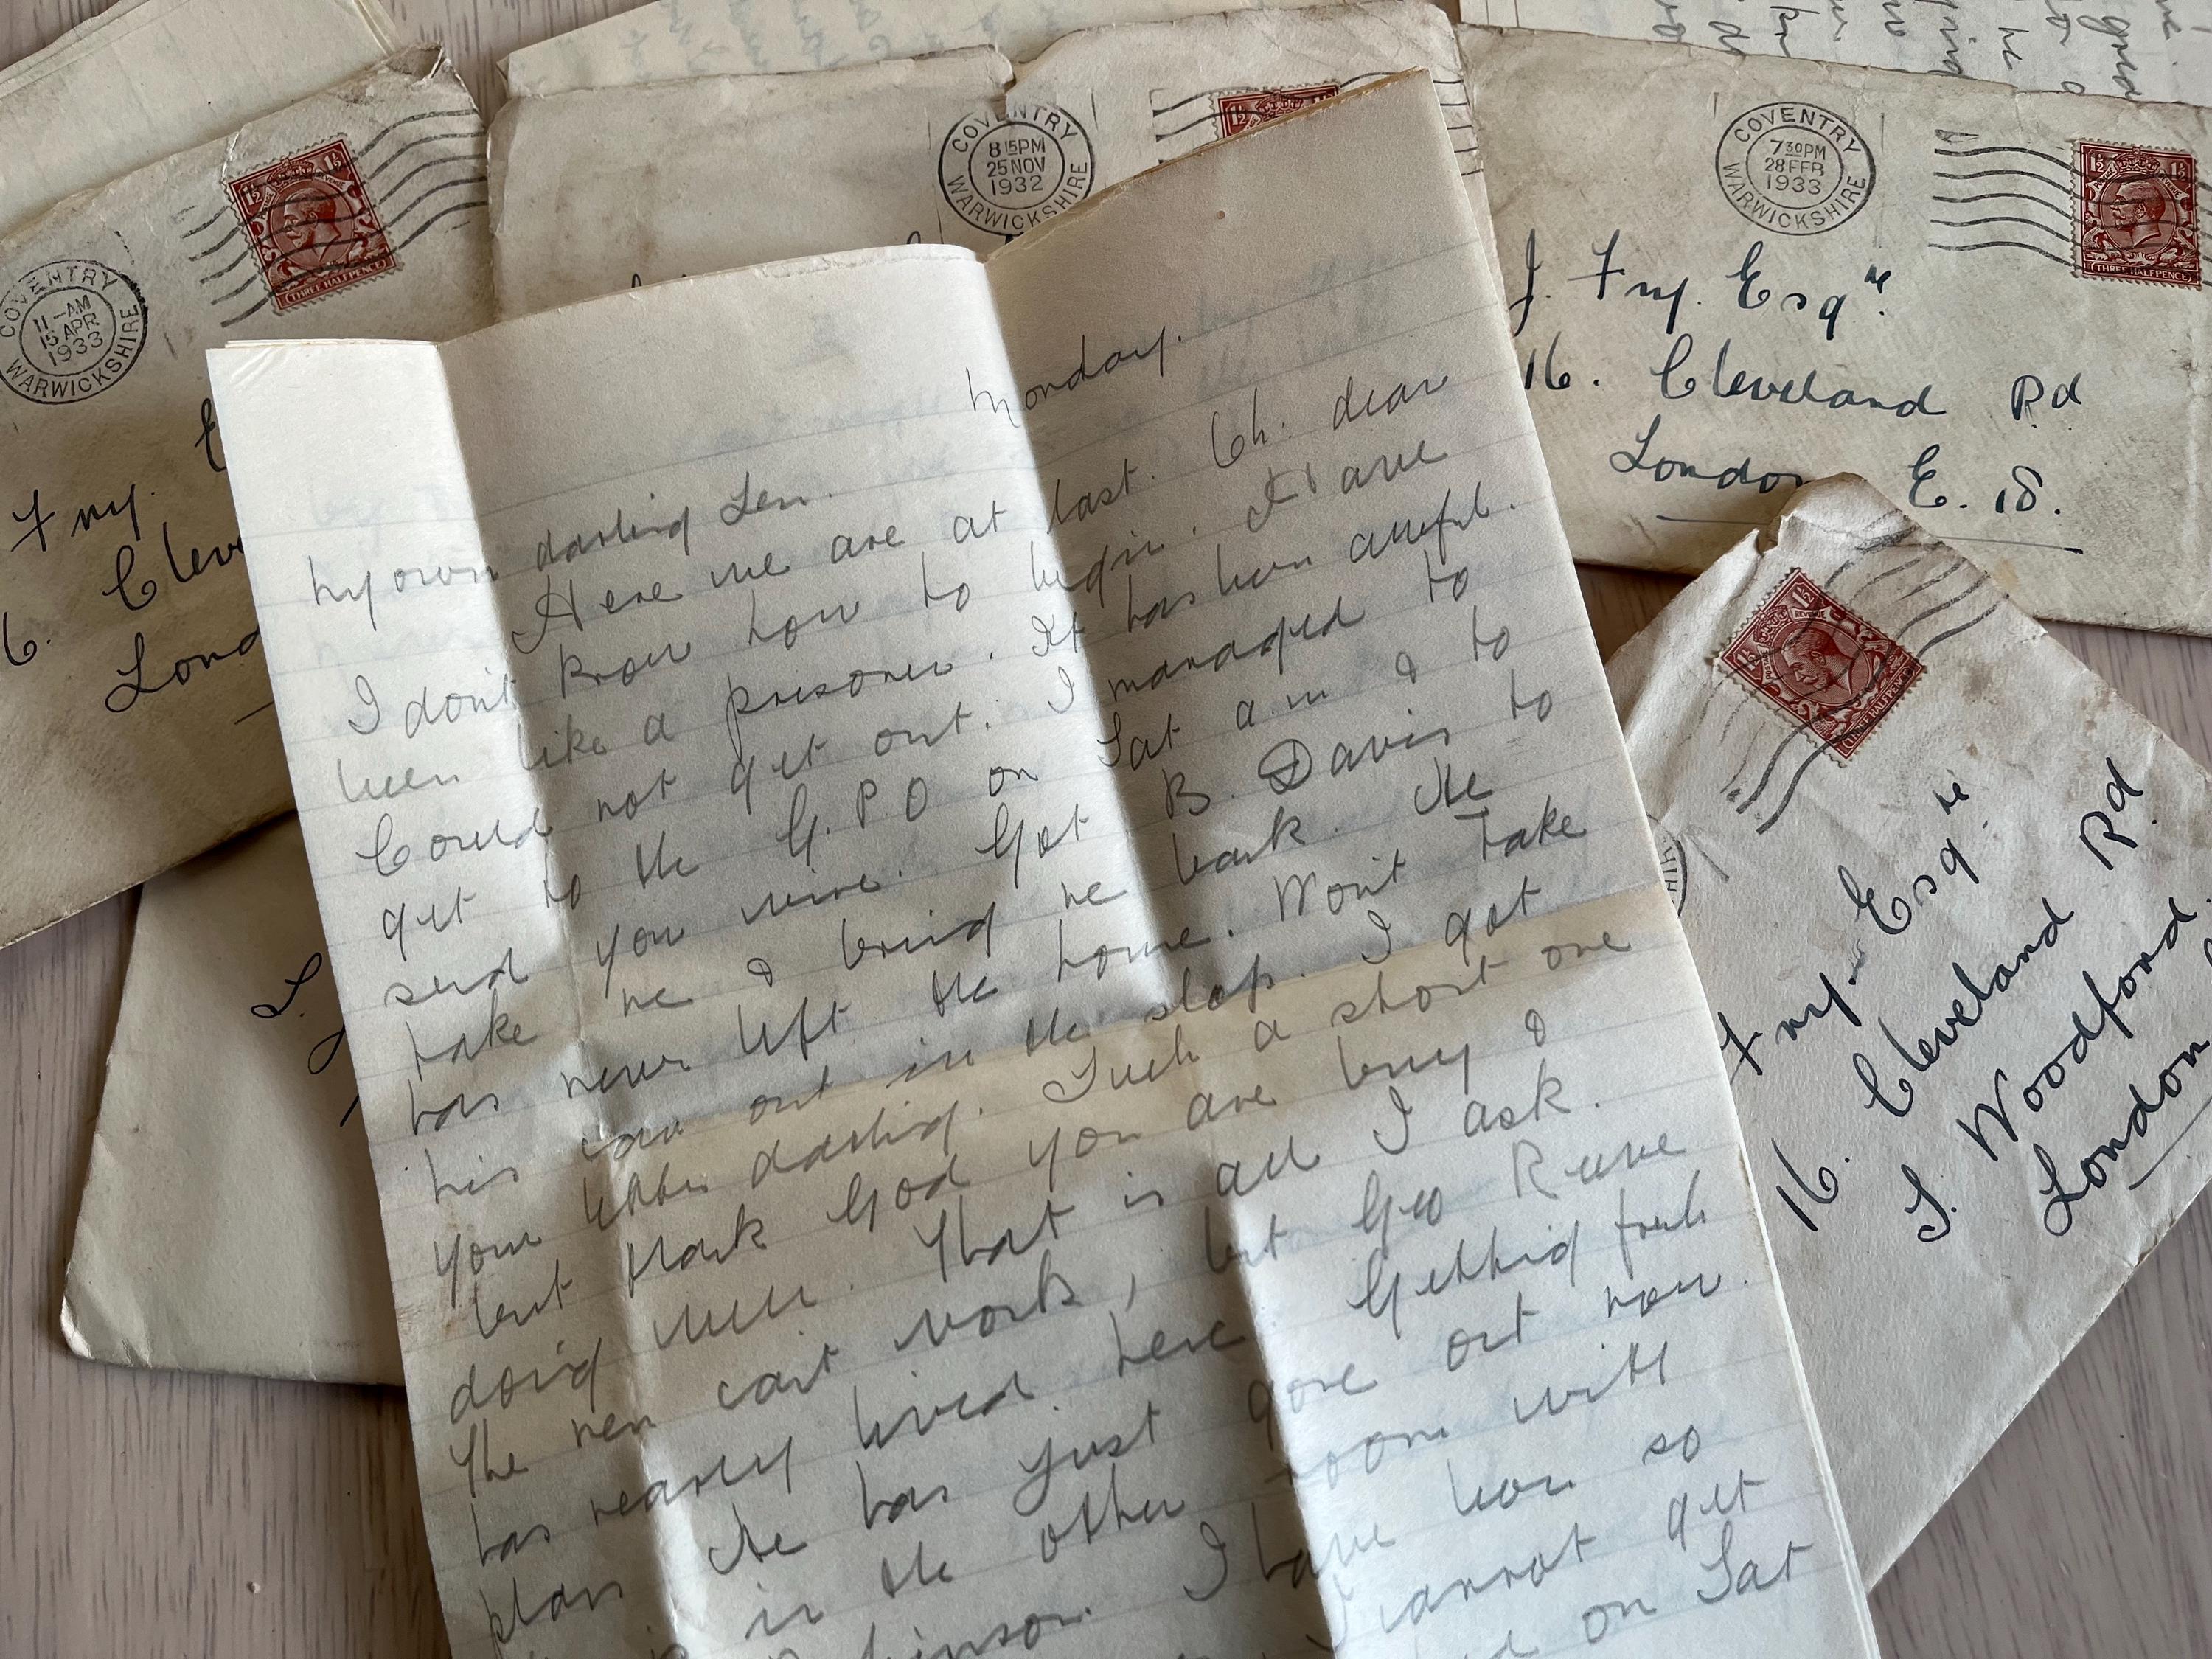 COVENTRY
WARWICKSHIRE
11-AM
15 APR
1933
(THREE HALFPENCE)
Fry.
6. Cleve
Lond
COVENTRY
WARWICKSHIRE
8 15PM
25 NOV
1932
COVENTRY
WARWICKSHIRE
7 30PM
28 FEB
1933
(THREE HALFPENCE)
J. Fry. Esqre.
16. Cleveland Rd
London E. 18.
REVENUE
(THREE HALFPENCE)
Fry. Esqre.
16. Cleveland Rd
S. Woodford.
London
Monday.
My own darling Len.
Here we are at last. Oh. dear
I don't know how to begin. I have
been like a prisoner. It has been awful.
Could not get out. I managed to
get to the G.P.O on Sat am & to
send you wire. Got B. Davis to
take me & bring me back. He
has never left the home. Won't take
his car out in the slop. I got
your letter darling. Such a short one
but thank God you are busy &
doing well. That is all I ask.
The men can't work, but Geo Reeve
has nearly lived here. Getting fresh
plans He has just gone out now.
is in the other room with
I have been so
I cannot get
on Sat